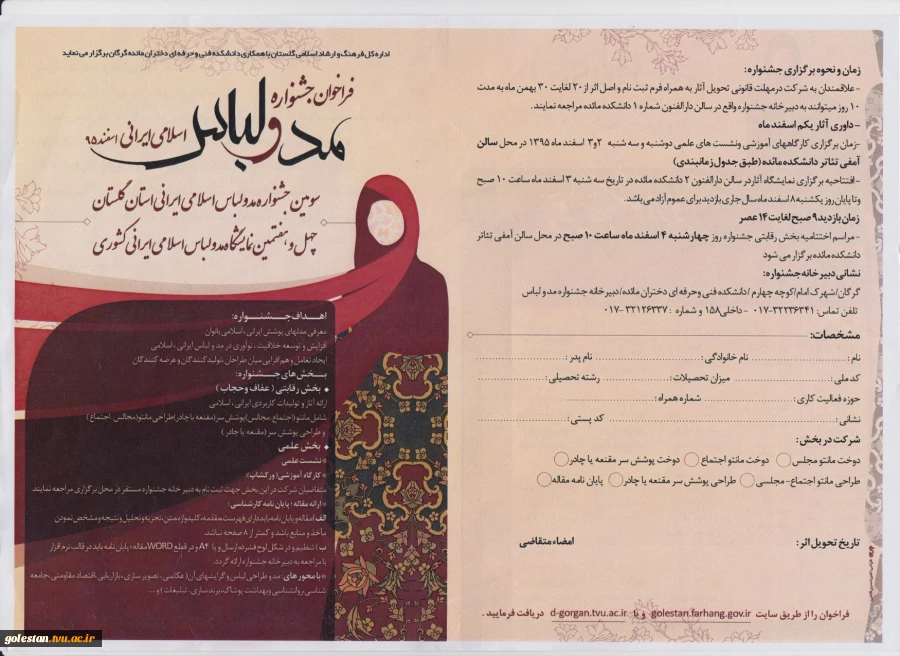 اداره کل فرهنگ و ارشاد اسلامی گلستان با همکاری دانشکده فنی و حرفه ای دختران مائده گرگان برگزار می نماید
فراخوان جشنواره
مد و لباس
اسلامی ایرانی اسفند ۹۵
سومین جشنواره مد و لباس اسلامی ایرانی استان گلستان
چهل و هفتمین نمایشگاه مد و لباس اسلامی ایرانی کشوری
اهداف جشنواره:
معرفی مدلهای پوشش ایرانی ، اسلامی بانوان
افزایش و توسعه خلاقیت ، نوآوری در مد و لباس ایرانی ، اسلامی
ایجاد تعامل و هم افزایی میان طراحان ،تولیدکنندگان و عرضه کنندگان
بخش های جشنواره:
بخش رقابتی ( عفاف و حجاب )
ارائه آثار و تولیدات کاربردی ایرانی ، اسلامی
شامل مانتو (اجتماع-مجالس) پوشش سر(مقنعه یا چادر)طراحی مانتو(مجالس،اجتماع)
و طراحی پوشش سر (مقنعه یا چادر )
بخش علمی
» نشست علمی
» کارگاه آموزشی( ورکشاپ)
متقاضیان شرکت در این بخش جهت ثبت نام به دبیر خانه جشنواره مستقر در محل برگزاری مراجعه نمایند.
» ارائه مقاله / پایان نامه کارشناسی:
الف) مقاله و پایان نامه باید دارای فهرست،مقدمه،کلیدواژه،متن،تجزیه و تحلیل و نتیجه و مشخص نمودن
مآخذ و منابع باشد و کمتر از ۸ صفحه نباشد.
ب ) تنظیم و در شکل لوح فشرده ارسال و یا A۴ و در قطع WORD مقاله/ پایان نامه باید در قالب نرم افزار
با مراجعه به دبیرخانه جشنواره ارائه گردد.
» با محور های: مد و طراحی لباس و گرایشهای آن( عکاسی ، تصویر سازی ، بازاریابی،اقتصاد مقاومتی،جامعه
شناسی روانشناسی و بهداشت پوشاک،برندسازی ، تبلیغات ) و...
زمان و نحوه برگزاری جشنواره :
-علاقمندان به شرکت در مهلت قانونی تحویل آثار به همراه فرم ثبت نام و اصل اثر از ۲۰ لغایت ۳۰ بهمن ماه به مدت
۱۰ روز میتوانند به دبیر خانه جشنواره واقع در سالن دارالفنون شماره ۱ دانشکده مائده مراجعه نمایند.
-داوری آثار یکم اسفند ماه
-زمان برگزاری کارگاههای آموزشی ونشست های علمی دوشنبه و سه شنبه ۲و۳ اسفند ماه ۱۳۹۵ در محل سالن
آمفی تئاتر دانشکده مائده (طبق جدول زمانبندی)
-افتتاحیه برگزاری نمایشگاه آثار در سالن دارالفنون ۲ دانشکده مائده در تاریخ سه شنبه ۳ اسفند ماه ساعت ۱۰ صبح
و تا پایان روز یکشنبه ۸ اسفند ماه سال جاری بازدید برای عموم آزاد می باشد.
زمان بازدید ۹ صبح لغایت ۱۴ عصر
-مراسم اختتامیه بخش رقابتی جشنواره روز چهارشنبه ۴ اسفند ماه ساعت ۱۰ صبح در محل سالن آمفی تئاتر
دانشکده مائده برگزار می شود
نشانی دبیر خانه جشنواره:
گرگان/شهرک امام/کوچه چهارم /دانشکده فنی و حرفه ای دختران مائده/دبیر خانه جشنواره مد و لباس
تلفن تماس: ۳۲۲۳۶۳۴۱-۰۱۷ - داخلی۱۵۸ و شماره : ۳۲۱۲۶۳۳۷-۰۱۷
مشخصات:
نام : نام خانوادگی: نام پدر :
کد ملی : میزان تحصیلات : رشته تحصیلی :
حوزه فعالیت کاری : شماره همراه :
نشانی : کد پستی :
شرکت در بخش :
دوخت مانتو مجلس دوخت مانتو اجتماع دوخت پوشش سر مقنعه یا چادر
طراحی مانتو اجتماع- مجلسی طراحی پوشش سر مقنعه یا چادر پایان نامه مقاله
تاریخ تحویل اثر : امضاء متقاضی
فراخوان را از طریق سایت golestan.farhang.gov.ir و یا d-gorgan.tvu.ac.ir دریافت فرمایید .
golestan.tvu.ac.ir